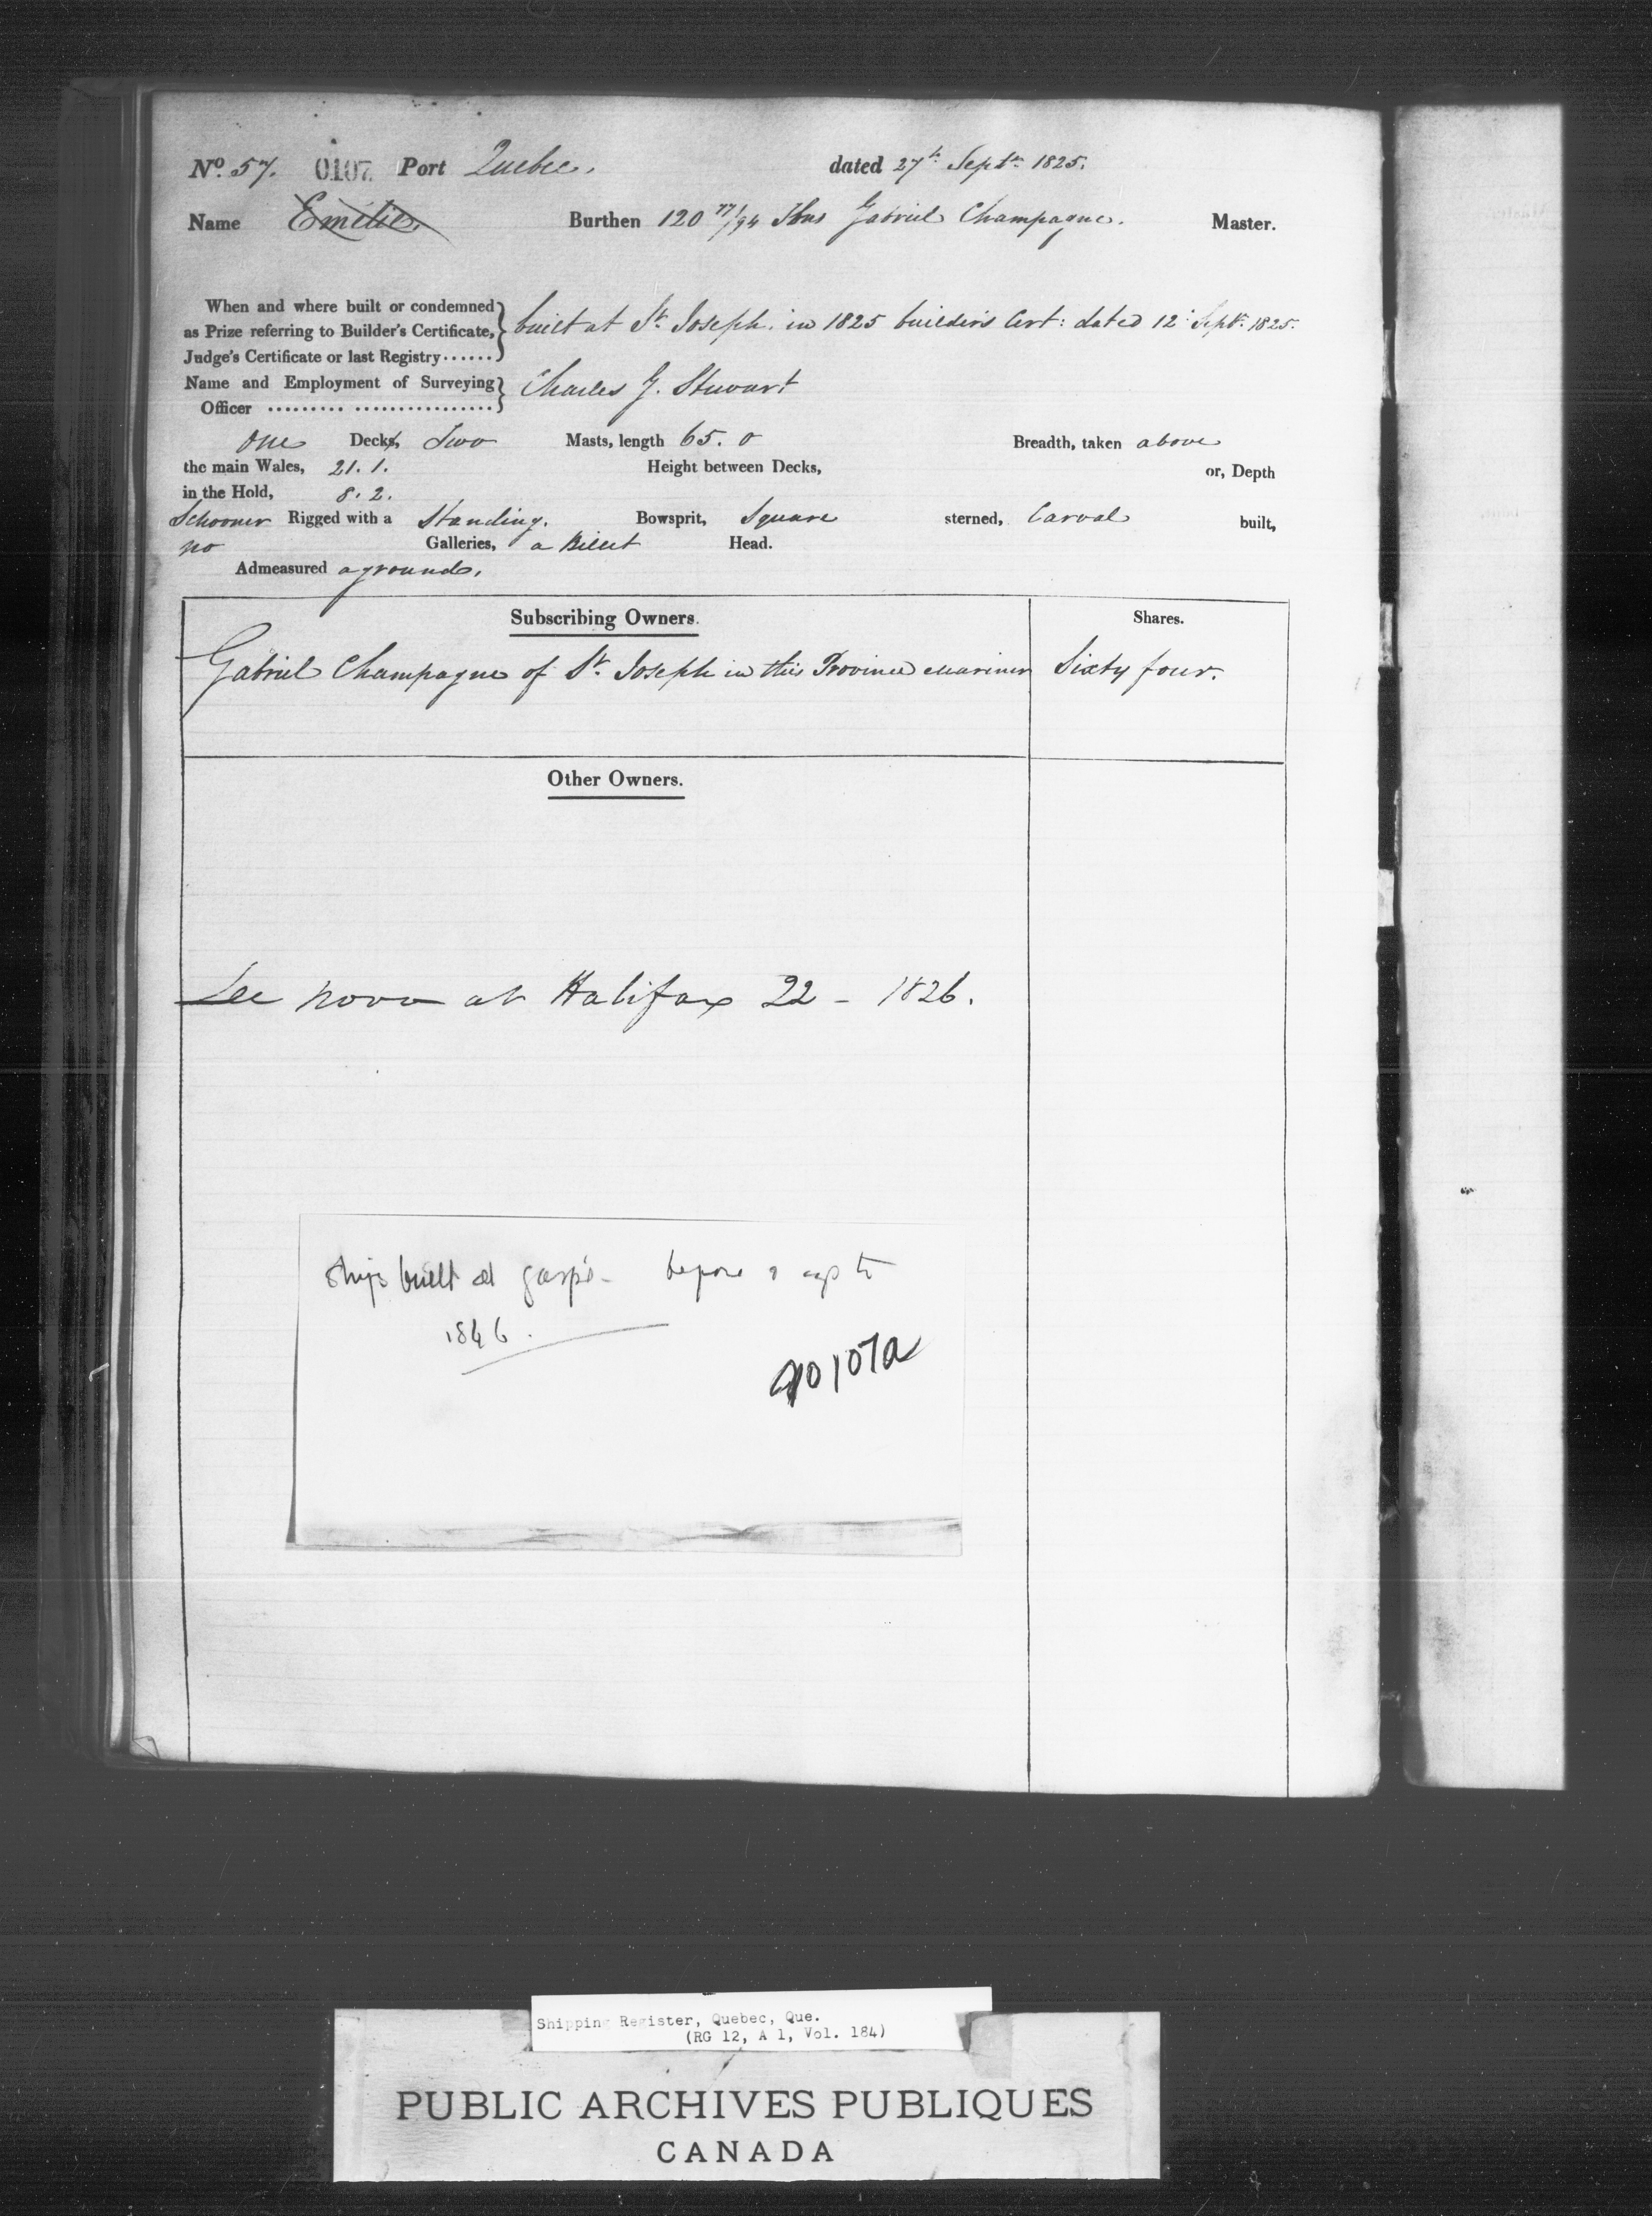 No. 57. 0107 Port Quebec. dated 27th Septr 1825.
Name Emélie. Burthen 120 77/94 Tons Gabriel Champagne. Master.
When and where built or condemned
as Prize referring to Builder's Certificate,
Judge's Certificate or last Registry......
built at St Joseph in 1825 builder's Cert: dated 12 Septr 1825.
Name and Employment of Surveying
Officer ......... ................
Charles G. Stewart
One Decks, Two Masts, length 65. 0 Breadth, taken above
the main Wales, 21. 1. Height between Decks, or, Depth
in the Hold, 8. 2.
Schooner Rigged with a Standing. Bowsprit, Square sterned, Carval built,
no Galleries, a Billet Head.
Admeasured aground.
Subscribing Owners. Shares.
Gabriel Champagne of St Joseph in this Province Mariner Sixty four.
Other Owners.
at Halifax 22 - 1826.
Ships built at Gaspé - before & up to
1846.
0107a
Shipping Register, Quebec, Que.
(RG 12, A 1, Vol. 184)
PUBLIC ARCHIVES PUBLIQUES
CANADA